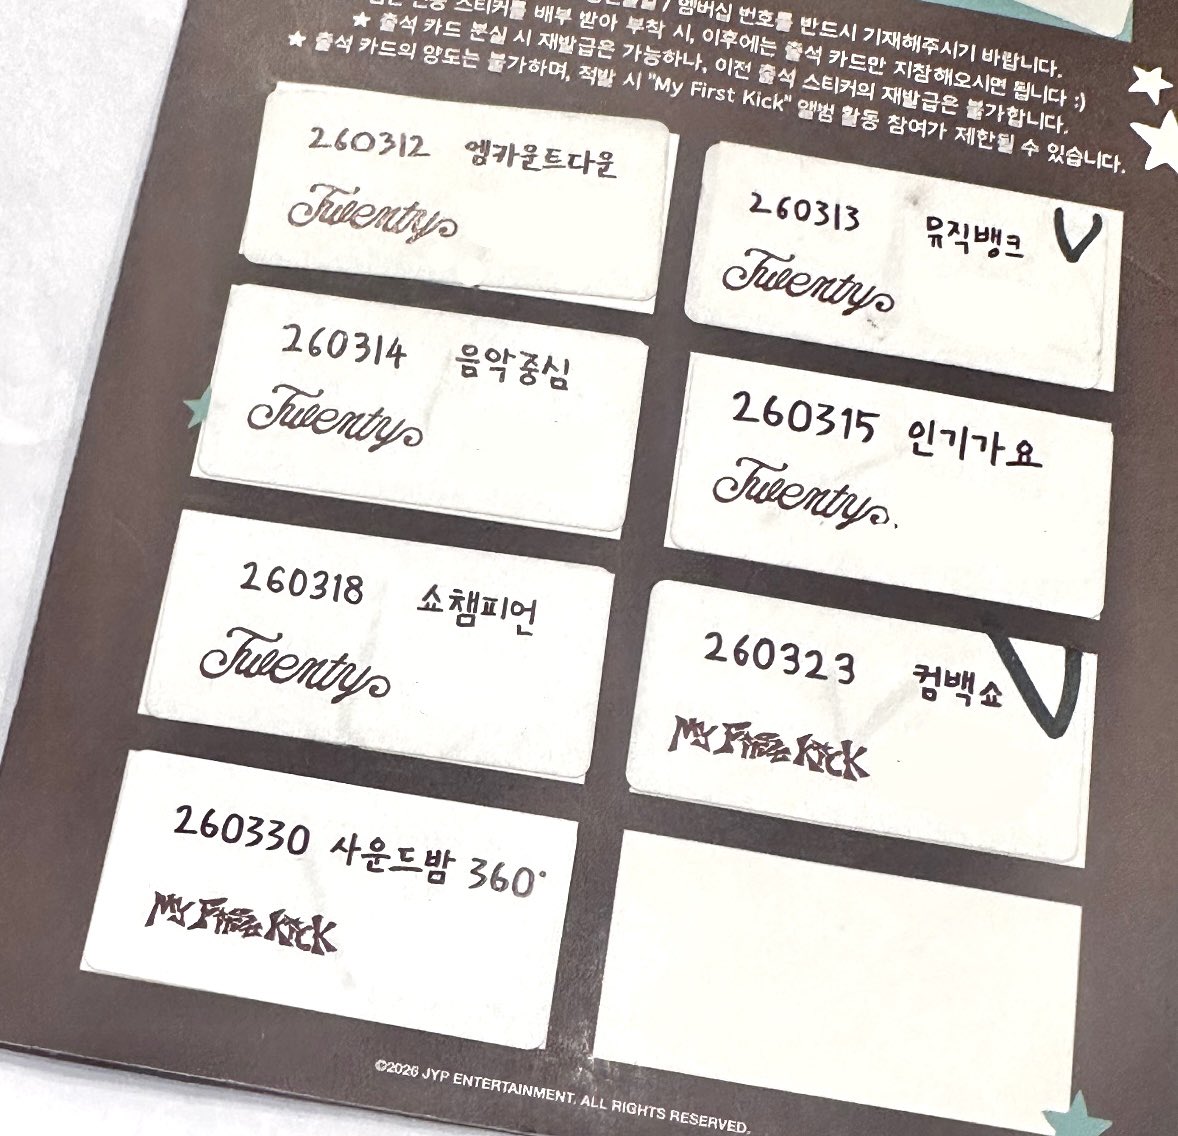 스티커를 배부 받아 부착 시, 이후에는 출석 카드만 지참해오시면 됩니다 :)
/ 멤버십 번호를 반드시 기재해주시기 바랍니다.
★ 출석 카드 분실 시 재발급은 가능하나, 이전 출석 스티커의 재발급은 불가합니다.
★ 출석 카드의 양도는 불가하며, 적발 시 "My First Kick" 앨범 활동 참여가 제한될 수 있습니다.
260312 엠카운트다운
Twenty
260313 뮤직뱅크 V
Twenty
260314 음악중심
Twenty
260315 인기가요
Twenty
260318 쇼챔피언
Twenty
260323 컴백쇼 V
My First Kick
260330 사운드밤 360°
My First Kick
©2026 JYP ENTERTAINMENT. ALL RIGHTS RESERVED.